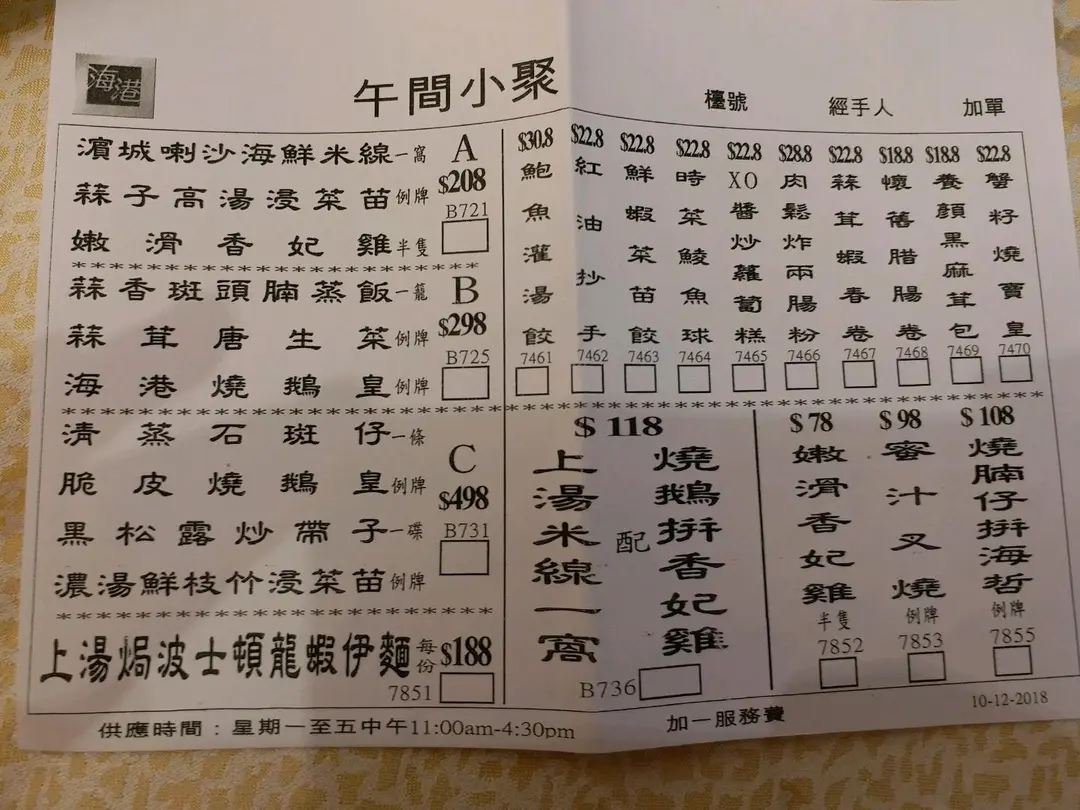 海港
午間小聚
檯號 經手人 加單
濱城喇沙海鮮米線一窩
蒜子高湯浸菜苗例牌
嫩滑香妃雞半隻
A
$208
B721
蒜香斑頭腩蒸飯一籠
蒜茸唐生菜例牌
海港燒鵝皇例牌
B
$298
B725
清蒸石斑仔一條
脆皮燒鵝皇例牌
黑松露炒帶子一碟
濃湯鮮枝竹浸菜苗例牌
C
$498
B731
上湯焗波士頓龍蝦伊麵每份$188
7851
$30.8 鮑魚灌湯餃 7461
$22.8 紅油抄手 7462
$22.8 鮮蝦菜苗餃 7463
$22.8 時菜鯪魚球 7464
$22.8 XO醬炒蘿蔔糕 7465
$28.8 肉鬆炸兩腸粉 7466
$22.8 蒜茸蝦春卷 7467
$18.8 懷舊腊腸卷 7468
$18.8 養顏黑麻茸包 7469
$22.8 蟹籽燒賣皇 7470
$118
燒鵝拼香妃雞
配
上湯米線一窩
B736
$78 嫩滑香妃雞半隻 7852
$98 蜜汁叉燒例牌 7853
$108 燒腩仔拼海哲例牌 7855
供應時間：星期一至五中午11:00am-4:30pm
加一服務費
10-12-2018